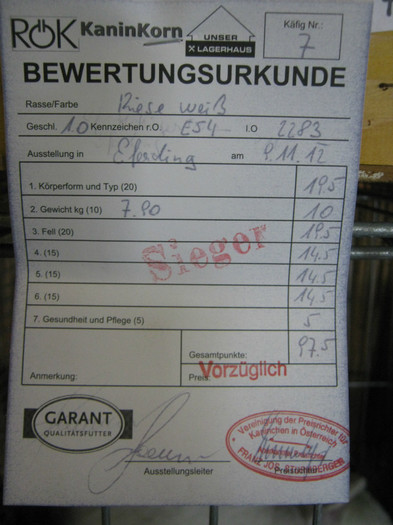 RÖK KaninKorn UNSER X LAGERHAUS Käfig Nr.: 7
BEWERTUNGSURKUNDE
Rasse/Farbe Riese weiß
Geschl. 1.0 Kennzeichen r.O. E54 l.O 2283
Ausstellung in Eferding am 9.11.12
1. Körperform und Typ (20) 19.5
2. Gewicht kg (10) 7.90 10
3. Fell (20) 19.5
4. (15) 14.5
5. (15) 14.5
6. (15) 14.5
7. Gesundheit und Pflege (5) 5
Sieger
Gesamtpunkte: 97.5
Anmerkung: Preis: Vorzüglich
GARANT
QUALITÄTSFUTTER
Ausstellungsleiter
Vereinigung der Preisrichter für
Kaninchen in Österreich
FRANZ JOS.
Preisrichter